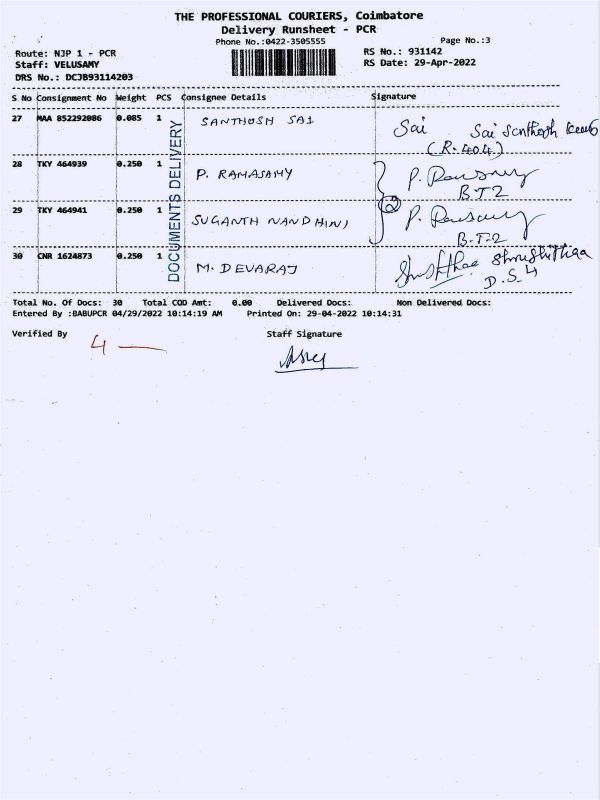 THE PROFESSIONAL COURIERS, Coimbatore
Delivery Runsheet - PCR
Phone No.:0422-3505555 Page No.:3
Route: NJP 1 - PCR RS No.: 931142
Staff: VELUSAMY RS Date: 29-Apr-2022
DRS No.: DCJB93114203
S No Consignment No Weight PCS Consignee Details Signature
27 MAA 852292086 0.085 1 SANTHOSH SAI Sai Sai Santhosh
(R-404)
28 TKY 464939 0.250 1 P. RAMASAMY P. Ramasamy
B.T2
29 TKY 464941 0.250 1 SUGANTH NANDHINI P. Ramasamy
2
B.T-2
30 CNR 1624873 0.250 1 M. DEVARAJ
D.S.4
DOCUMENTS DELIVERY
Total No. Of Docs: 30 Total COD Amt: 0.00 Delivered Docs: Non Delivered Docs:
Entered By :BABUPCR 04/29/2022 10:14:19 AM Printed On: 29-04-2022 10:14:31
Verified By Staff Signature
4 —